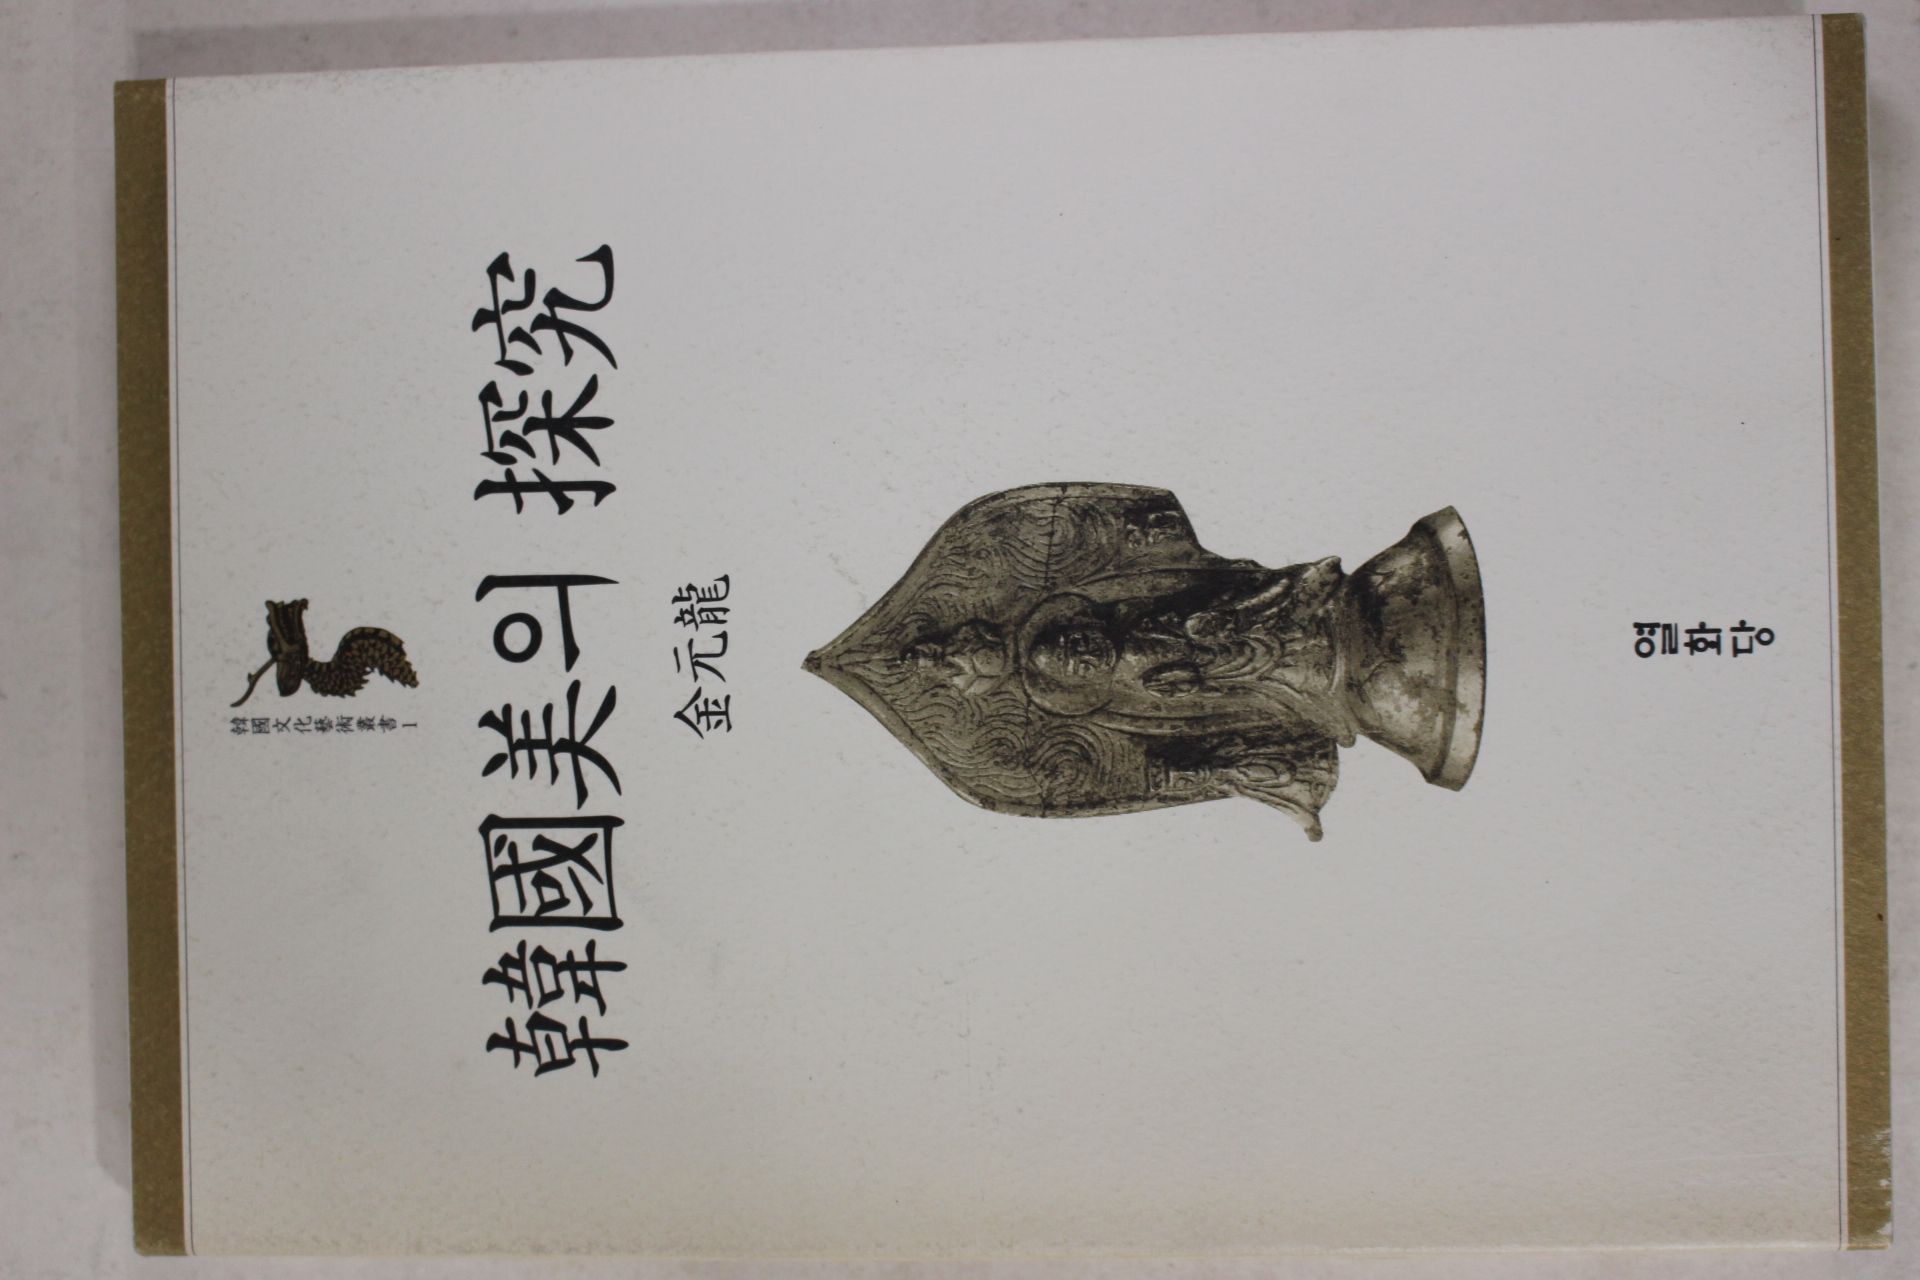 韓國文化藝術叢書 1
韓國美의 探究
金元龍
열화당